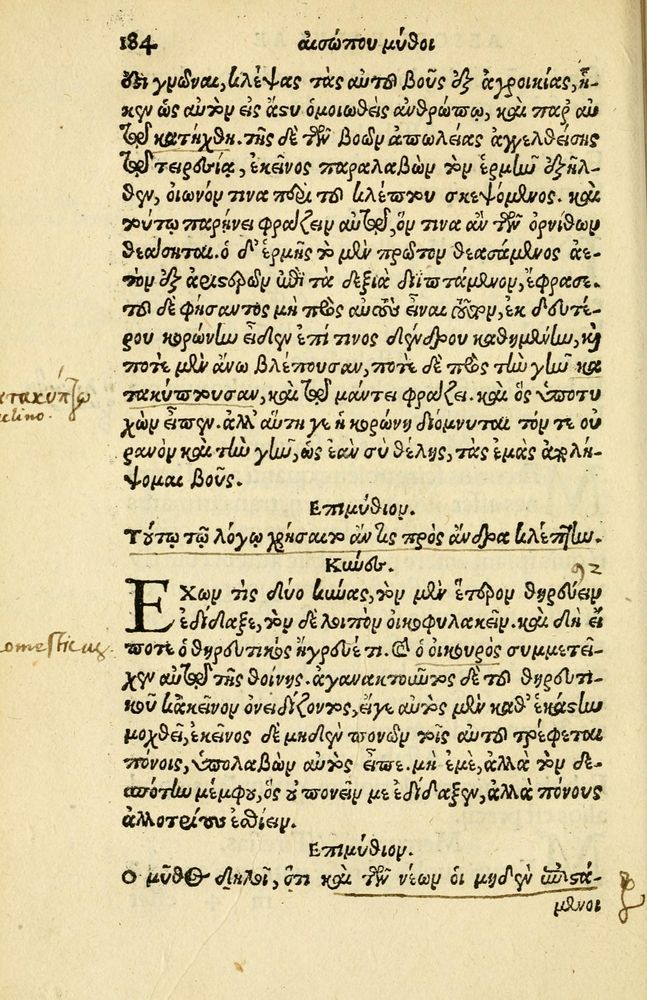 184 αισώπου μύθοι
δει γνῶναι, κλέψας τὰς αὐτοῦ βοῦς ἐξ ἀγροικίας, ἧ-
κεν ὡς αὐτὸν εἰς ἄστυ ὁμοιωθεὶς ἀνθρώπῳ, καὶ παρ' αὐ
τῷ κατήχθη. τῆς δὲ τῶν βοῶν ἀπωλείας ἀγγελθείσης
τῷ τειρεσίᾳ, ἐκεῖνος παραλαβὼν τὸν ἑρμῆν ἐξῆλ-
θεν, οἰωνόν τινα περὶ τοῦ κλέπτου σκεψόμενος. καὶ
τούτῳ παρῄνει φράζειν αὐτῷ, ὅν τινα ἂν τῶν ὀρνίθων
θεάσηται. ὁ δ' ἑρμῆς τὸ μὲν πρῶτον θεασάμενος ἀε-
τὸν ἐξ ἀριστερῶν ἐπὶ τὰ δεξιὰ διϊπτάμενον, ἔφρασε.
τοῦ δὲ φήσαντος μὴ πρὸς αὐτοὺς εἶναι τοῦτον, ἐκ δευτέ-
ρου κορώνην εἶδεν ἐπί τινος δένδρου καθημένην, καὶ
ποτὲ μὲν ἄνω βλέπουσαν, ποτὲ δὲ πρὸς τὴν γῆν κα
τακύπτουσαν, καὶ τῷ μάντει φράζει. καὶ ὃς ὑποτυ
χὼν εἶπεν. ἀλλ' αὕτη γε ἡ κορώνη διόμνυται τόν τε οὐ
ρανὸν καὶ τὴν γῆν, ὡς ἐὰν σὺ θέλῃς, τὰς ἐμὰς ἀπολή-
ψομαι βοῦς.
Επιμύθιον.
Τούτῳ τῷ λόγῳ χρήσαιτο ἄν τις πρὸς ἄνδρα κλέπτην.
Κύνες. 92
ΕΧων τὶς δύο κύνας, τὸν μὲν ἕτερον θηρεύειν
ἐδίδαξε, τὸν δὲ λοιπὸν οἰκοφυλακεῖν. καὶ δὴ εἴ
ποτε ὁ θηρευτικὸς ἤγρευέ τι. καὶ ὁ οἰκουρὸς συμμετεῖ-
χεν αὐτῷ τῆς θοίνης. ἀγανακτοῦντος δὲ τοῦ θηρευτι-
κοῦ κἀκεῖνον ὀνειδίζοντος, εἴγε αὐτὸς μὲν καθ' ἑκάστην
μοχθεῖ, ἐκεῖνος δὲ μηδὲν πονῶν τοῖς αὐτοῦ τρέφεται
πόνοις, ὑπολαβὼν αὐτὸς εἶπε. μὴ ἐμὲ, ἀλλὰ τὸν δε-
σπότην μέμφου, ὃς οὐ πονεῖν με ἐδίδαξεν, ἀλλὰ πόνους
ἀλλοτρίους ἐσθίειν.
Επιμύθιον.
Ο μῦθος δηλοῖ, ὅτι καὶ τῶν νέων οἱ μηδὲν ἐπιστά-
μενοι